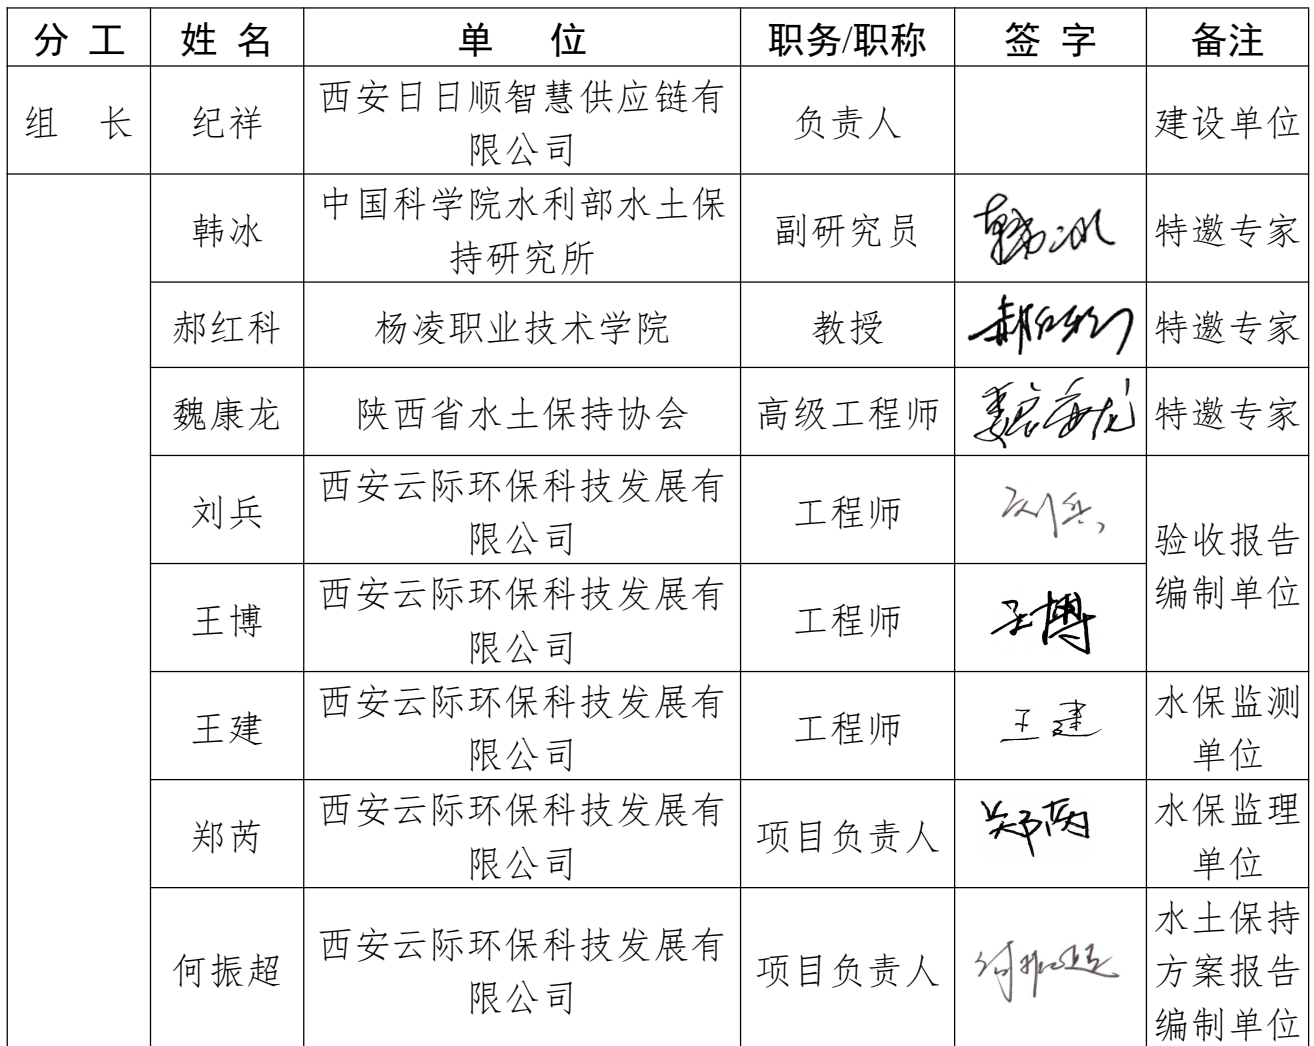 分 工 姓 名 单 位 职务/职称 签 字 备注
组 长 纪祥 西安日日顺智慧供应链有 负责人 建设单位
限公司
韩冰 中国科学院水利部水土保 副研究员 韩冰 特邀专家
持研究所
郝红科 杨凌职业技术学院 教授 郝红科 特邀专家
魏康龙 陕西省水土保持协会 高级工程师 魏康龙 特邀专家
刘兵 西安云际环保科技发展有 工程师 刘兵 验收报告
限公司 编制单位
王博 西安云际环保科技发展有 工程师 王博
限公司
王建 西安云际环保科技发展有 工程师 王建 水保监测
限公司 单位
郑芮 西安云际环保科技发展有 项目负责人 郑芮 水保监理
限公司 单位
何振超 西安云际环保科技发展有 项目负责人 何振超 水土保持
限公司 方案报告
编制单位